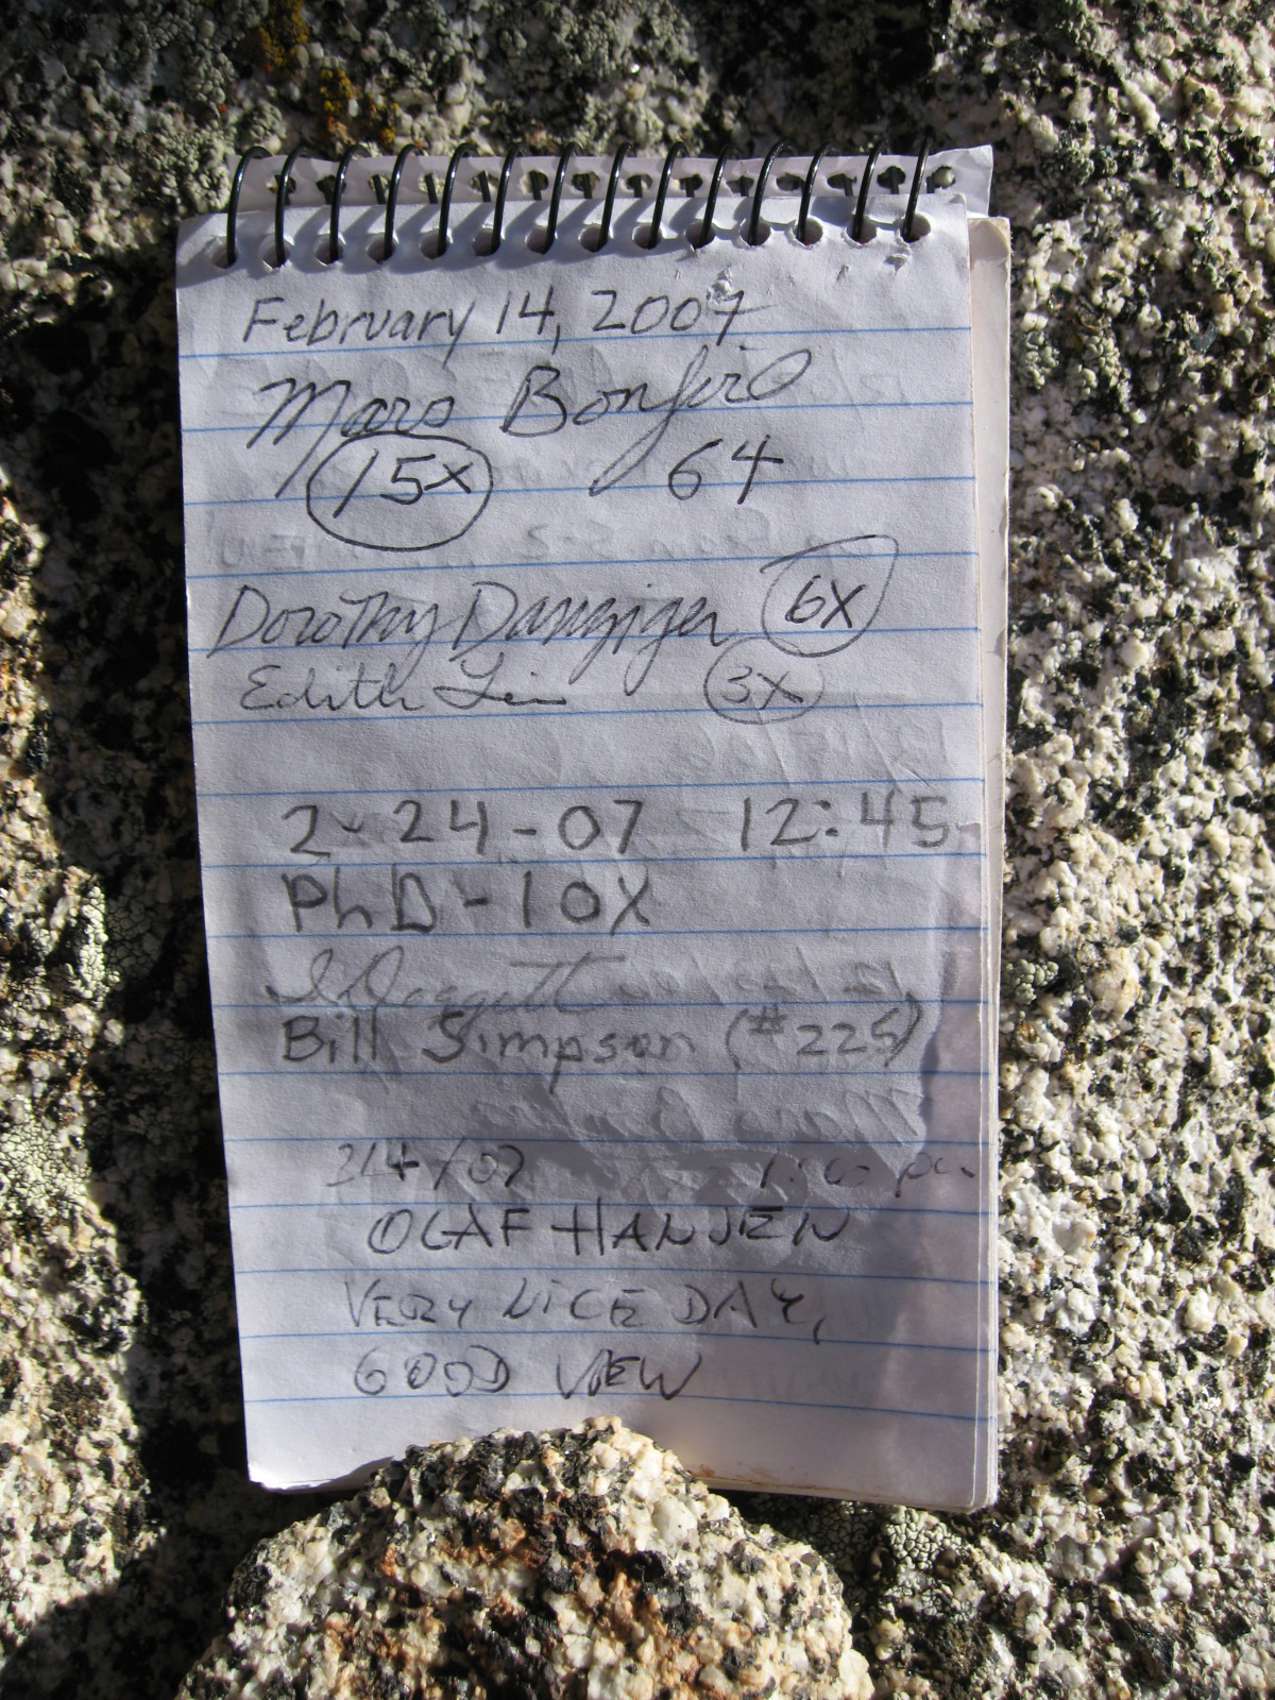 February 14, 2007
Mars Bonfire
15x 64
Dorothy Danziger 6X
Edith Liu 3X
2-24-07 12:45
PhD-10X
Bill Simpson (#225)
OLAF HANSEN
VERY NICE DAY,
GOOD VIEW